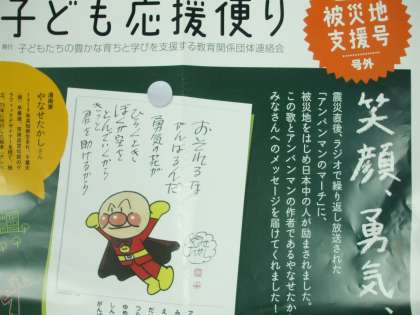 子ども応援便り
被災地
支援号
号外
発行 子どもたちの豊かな育ちと学びを支援する教育関係団体連絡会
笑顔、勇気、
震災直後、ラジオで繰り返し放送された
「アンパンマンのマーチ」に、
被災地をはじめ日本中の人が励まされました。
この歌とアンパンマンの作者であるやなせたか
みなさんへのメッセージを届けてくれました!
おそれるな
がんばるんだ
勇気の花が
ひらくとき
ぼくが空を
とんでいくから
きっと
君を助けるから
漫画家
やなせたかしさん